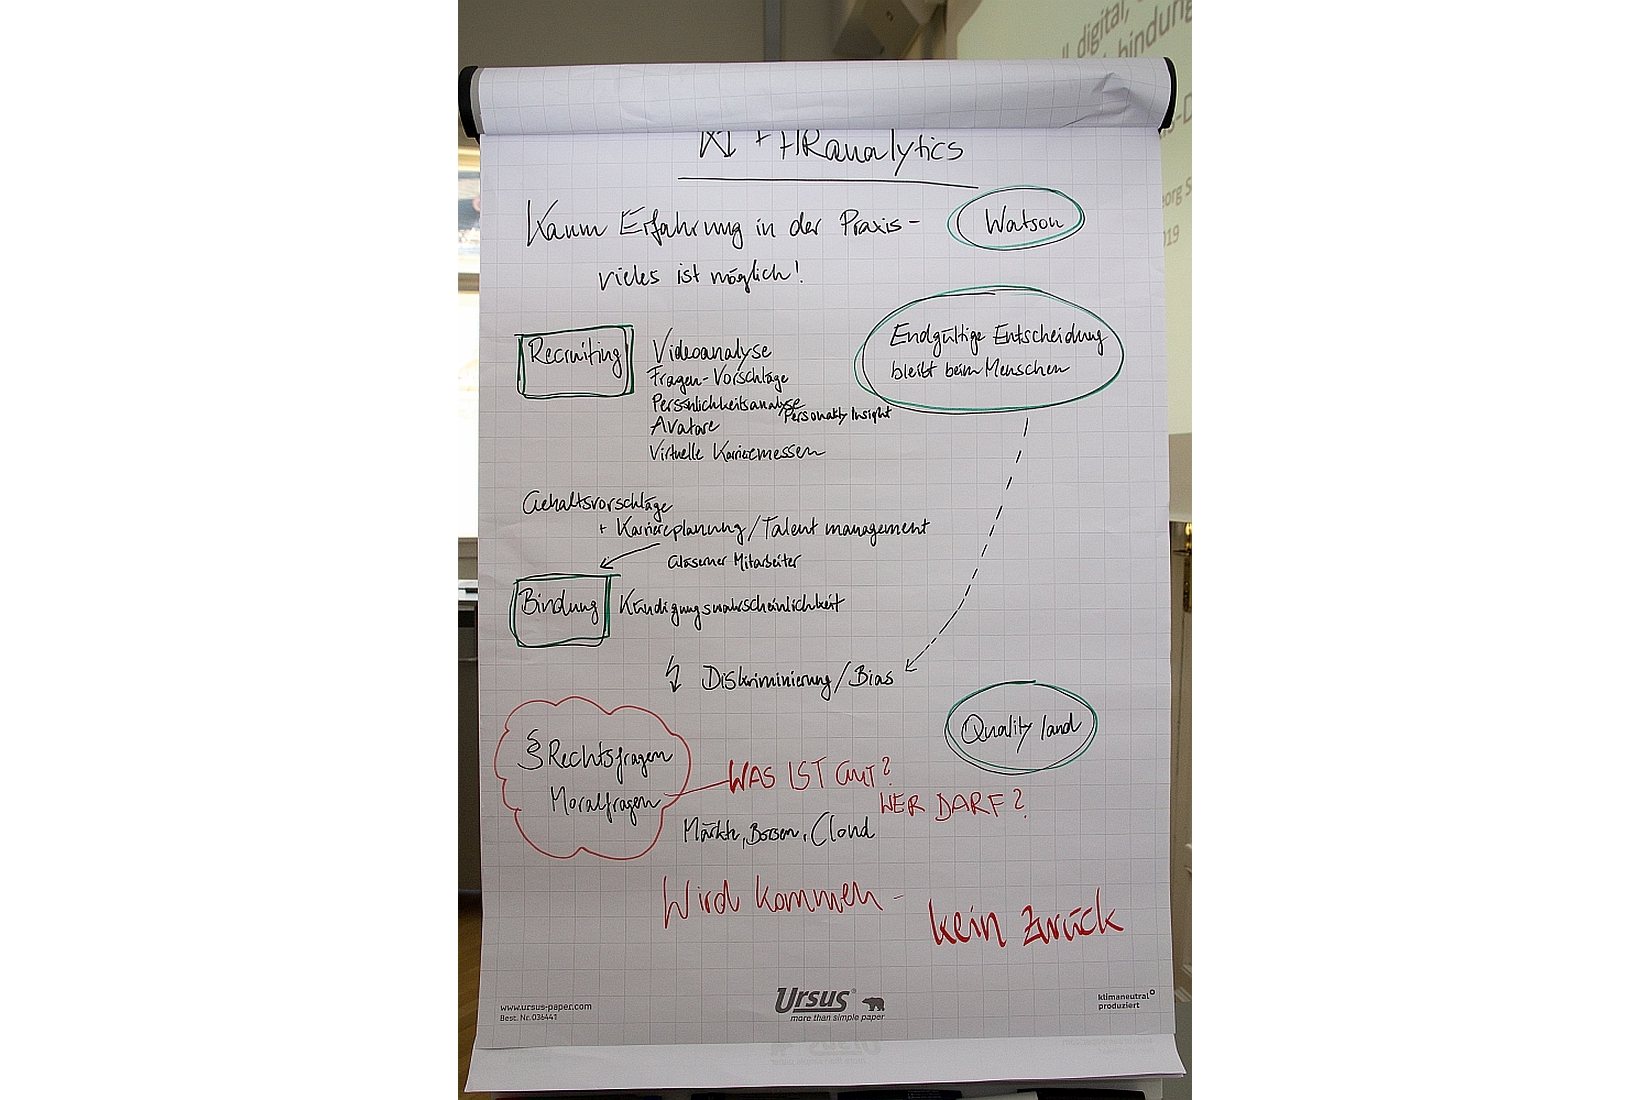 ll digital,
bindung
s-D
org S
019
KI + HRanalytics
Kaum Erfahrung in der Praxis -
vieles ist möglich!
Watson
Recruiting
Videoanalyse
Fragen-Vorschläge
Persönlichkeitsanalyse
Personality Insight
Avatare
Virtuelle Karrieremessen
Endgültige Entscheidung
bleibt beim Menschen
Gehaltsvorschläge
+ Karriereplanung/Talent management
Gläserner Mitarbeiter
Bindung
Kündigungswahrscheinlichkeit
Diskriminierung/Bias
Quality land
§ Rechtsfragen
Moralfragen
WAS IST GUT?
WER DARF?
Märkte, Börsen, Cloud
Wird kommen -
kein Zurück
www.ursus-paper.com
Best. Nr. 036441
Ursus®
more than simple paper
klimaneutral
produziert